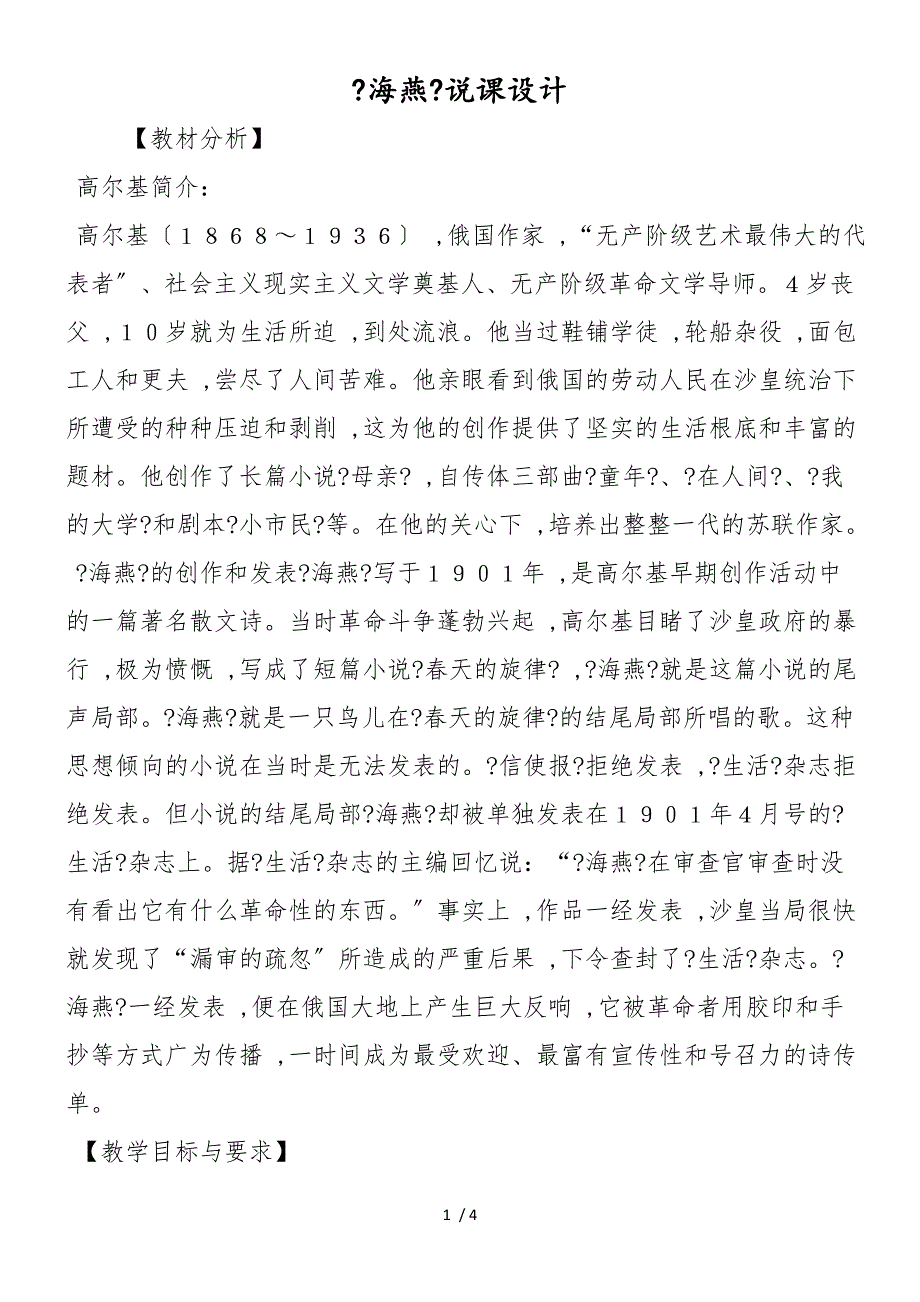 ?海燕?说课设计
【教材分析】
高尔基简介：
高尔基〔１８６８～１９３６〕 ,俄国作家 ,“无产阶级艺术最伟大的代
表者〞、社会主义现实主义文学奠基人、无产阶级革命文学导师。４岁丧
父 ,１０岁就为生活所迫 ,到处流浪。他当过鞋铺学徒 ,轮船杂役 ,面包
工人和更夫 ,尝尽了人间苦难。他亲眼看到俄国的劳动人民在沙皇统治下
所遭受的种种压迫和剥削 ,这为他的创作提供了坚实的生活根底和丰富的
题材。他创作了长篇小说?母亲? ,自传体三部曲?童年?、?在人间?、?我
的大学?和剧本?小市民?等。在他的关心下 ,培养出整整一代的苏联作家。
?海燕?的创作和发表?海燕?写于１９０１年 ,是高尔基早期创作活动中
的一篇著名散文诗。当时革命斗争蓬勃兴起 ,高尔基目睹了沙皇政府的暴
行 ,极为愤慨 ,写成了短篇小说?春天的旋律? ,?海燕?就是这篇小说的尾
声局部。?海燕?就是一只鸟儿在?春天的旋律?的结尾局部所唱的歌。这种
思想倾向的小说在当时是无法发表的。?信使报?拒绝发表 ,?生活?杂志拒
绝发表。但小说的结尾局部?海燕?却被单独发表在１９０１年４月号的?
生活?杂志上。据?生活?杂志的主编回忆说：“?海燕?在审查官审查时没
有看出它有什么革命性的东西。〞事实上 ,作品一经发表 ,沙皇当局很快
就发现了“漏审的疏忽〞所造成的严重后果 ,下令查封了?生活?杂志。?
海燕?一经发表 ,便在俄国大地上产生巨大反响 ,它被革命者用胶印和手
抄等方式广为传播 ,一时间成为最受欢迎、最富有宣传性和号召力的诗传
单。
【教学目标与要求】
1 / 4